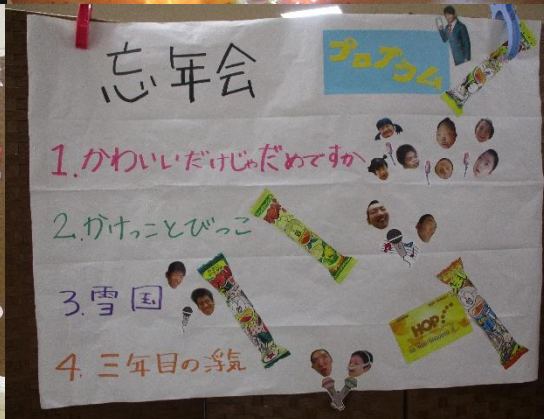 忘年会
プログラム
1.かわいいだけじゃだめですか
2.かけっことびっこ
3.雪国
HOP!
4.三年目の浮気